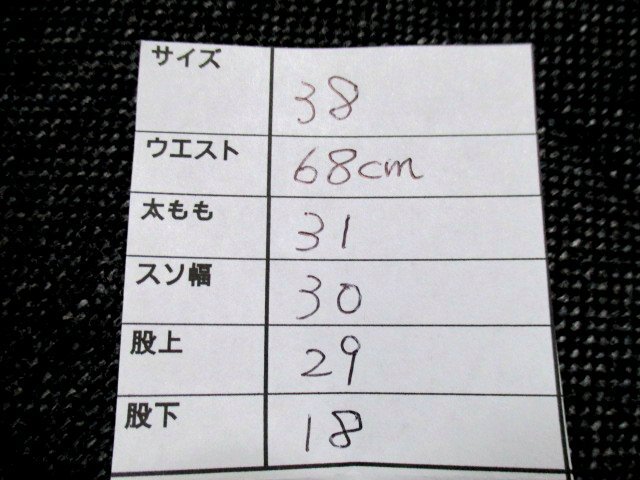 サイズ 38
ウエスト 68cm
太もも 31
スソ幅 30
股上 29
股下 18